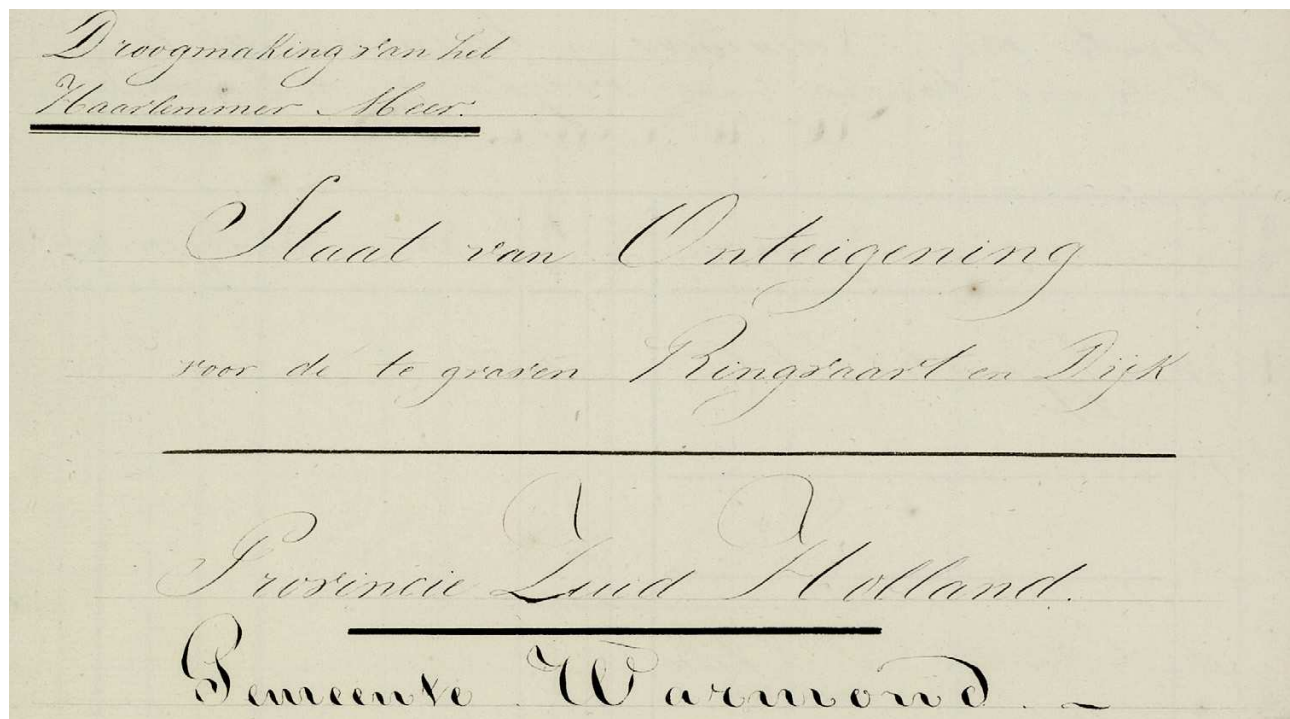 Droogmaking van het
Haarlemmer Meer.
Staat van Onteigening
voor de te graven Ringvaart en Dijk
Provincie Zuid Holland.
Gemeente Warmond. ~